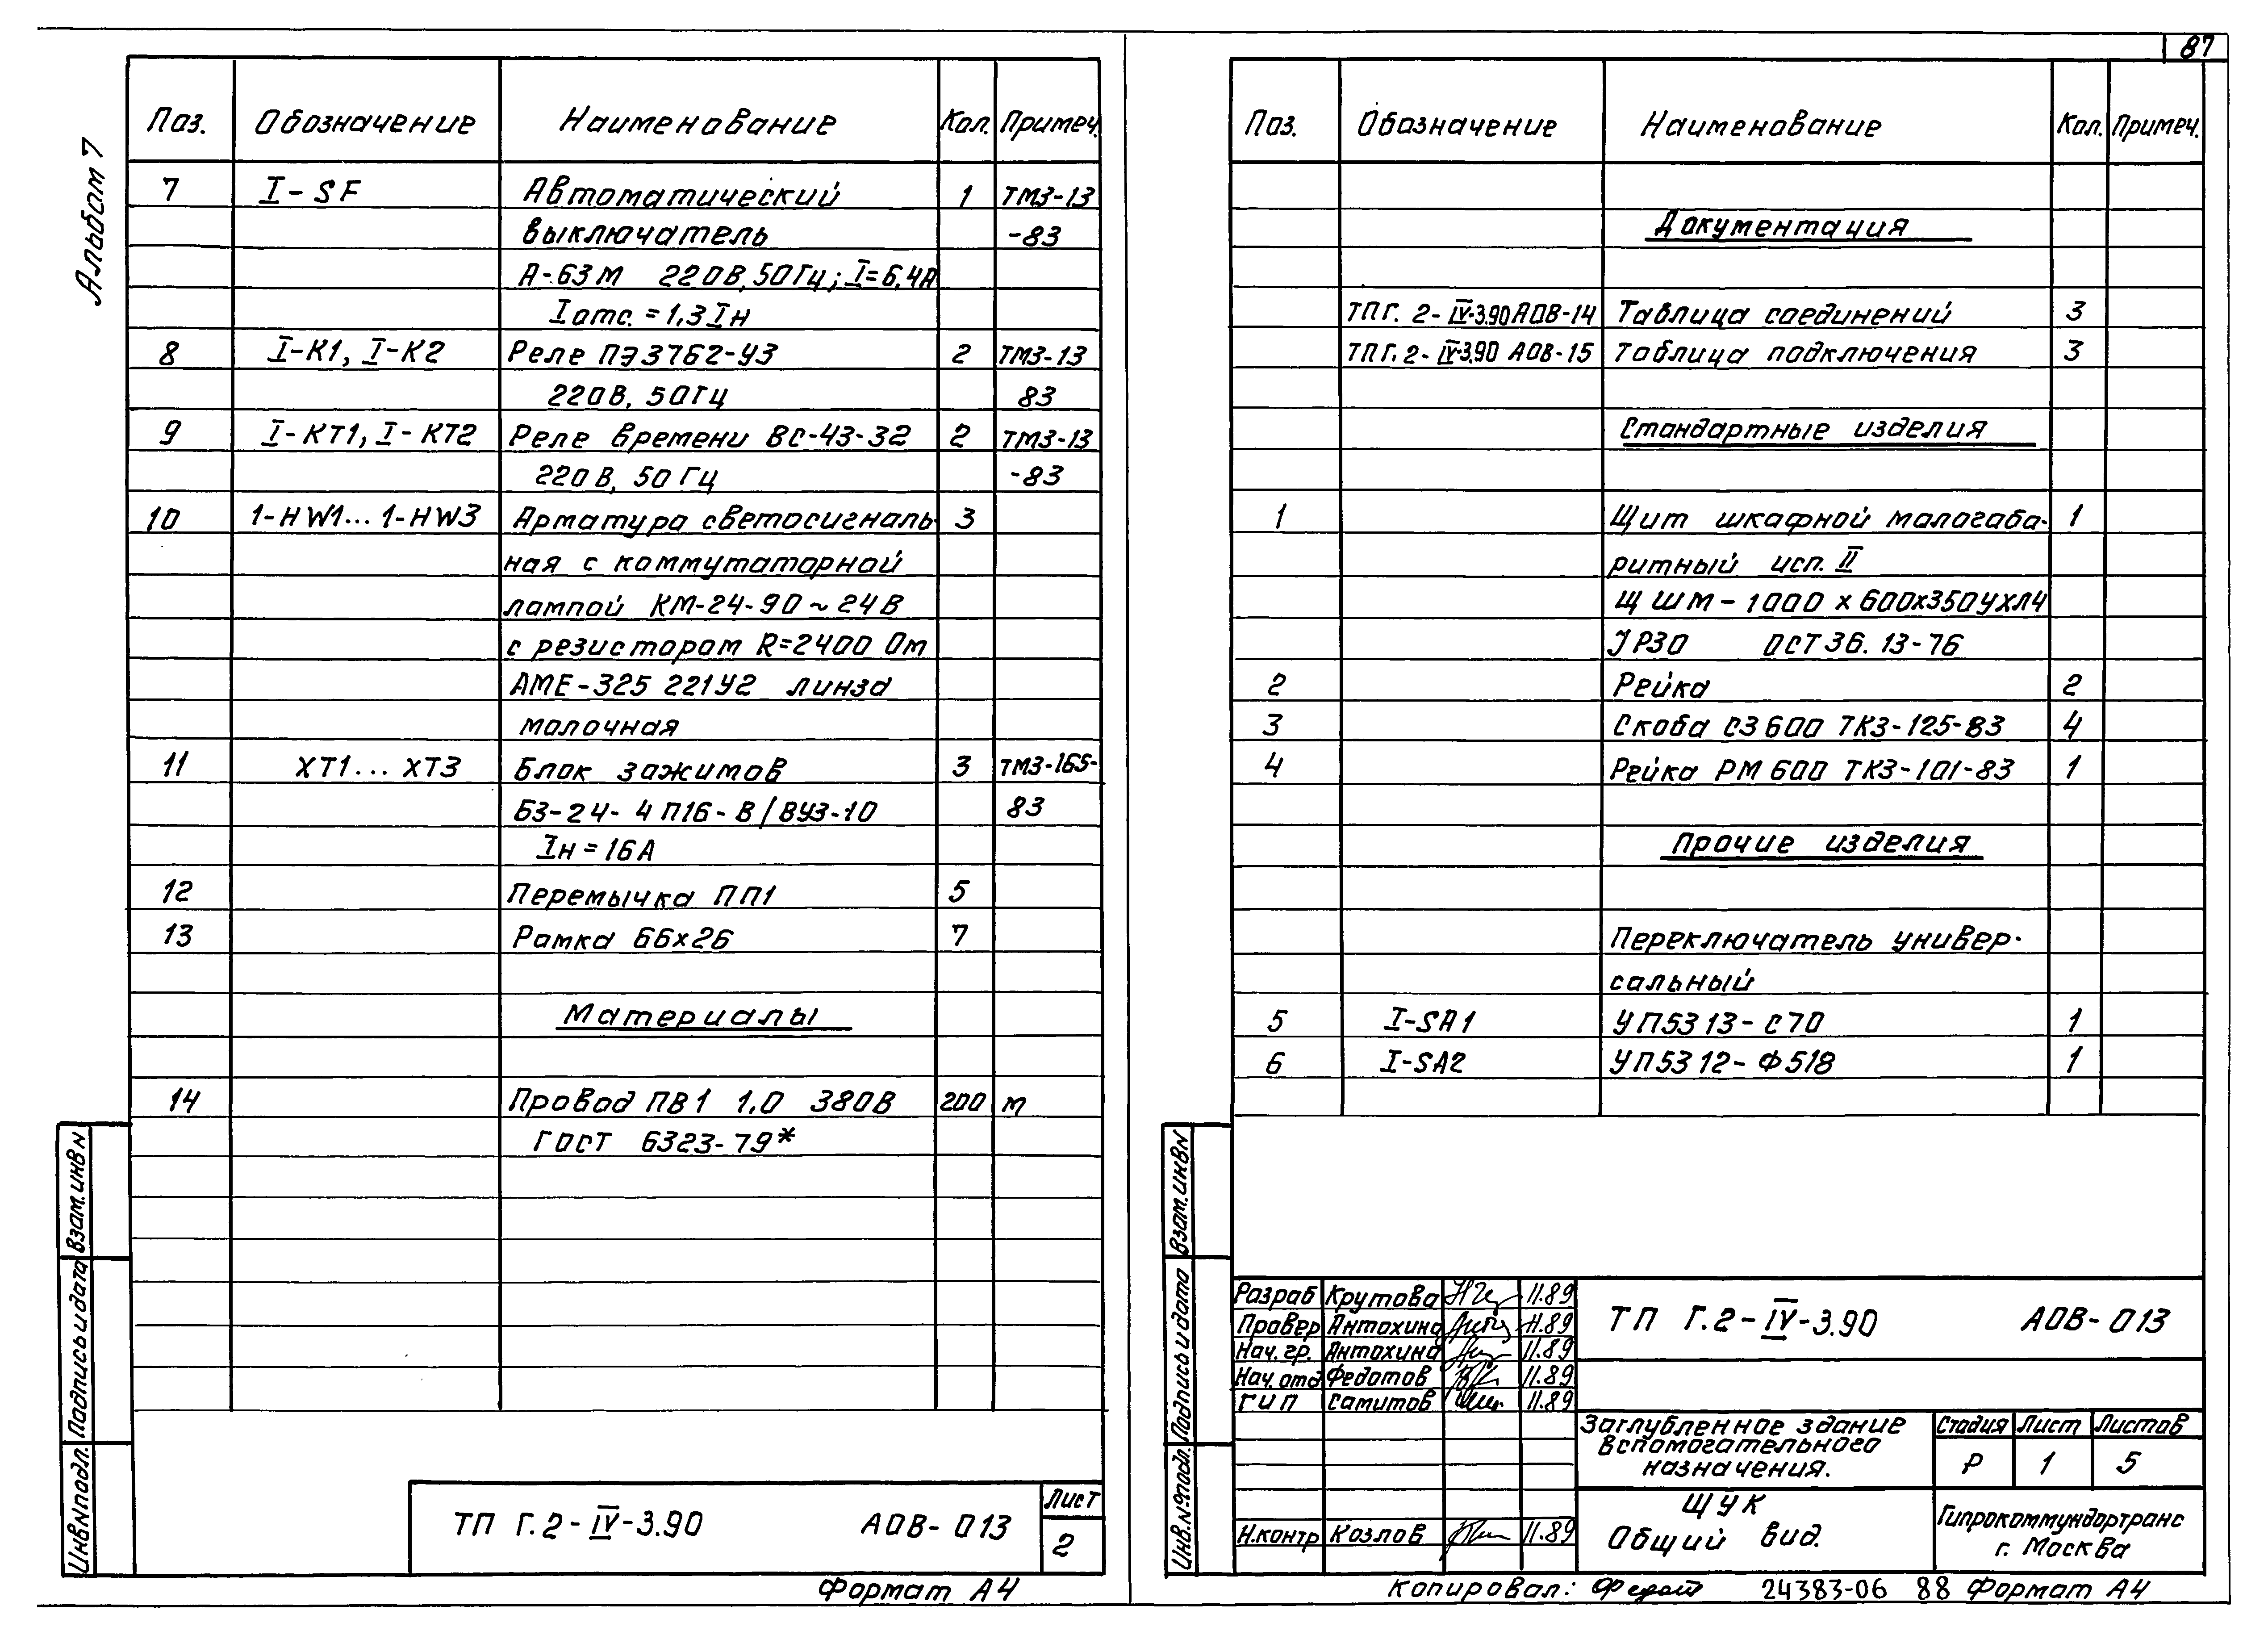 87
Альбом 7
Поз. Обозначение Наименование Кол. Примеч.
7 I-SF Автоматический 1 ТМ3-13
выключатель -83
А-63М 220В, 50Гц; I=6,4А
Iотс. = 1,3 Iн
8 I-К1, I-К2 Реле ПЭ3762-У3 2 ТМ3-13
220В, 50Гц 83
9 I-КТ1, I-КТ2 Реле времени ВС-43-32 2 ТМ3-13
220В, 50Гц -83
10 1-HW1... 1-HW3 Арматура светосигналь- 3
ная с коммутаторной
лампой КМ-24-90 ~ 24В
с резистором R=2400 Ом
АМЕ-325 221У2 линза
молочная
11 ХТ1... ХТ3 Блок зажимов 3 ТМ3-165-
БЗ-24-4П16-В/ВУ3-10 83
Iн = 16А
12 Перемычка ПП1 5
13 Рамка 66х26 7
Материалы
14 Провод ПВ1 1,0 380В 200 м
ГОСТ 6323-79*
Взам.инв N
Подпись и дата
Инв N подл.
ТП Г.2-IV-3.90 АОВ-013
Лист
2
Формат А4
Поз. Обозначение Наименование Кол. Примеч.
Документация
ТПГ. 2-IV-3.90 АОВ-14 Таблица соединений 3
ТПГ. 2-IV-3.90 АОВ-15 Таблица подключения 3
Стандартные изделия
1 Щит шкафной малогаба- 1
ритный исп. II
ЩШМ-1000х600х350УХЛ4
УР30 ОСТ36.13-76
2 Рейка 2
3 Скоба С3600 ТК3-125-83 4
4 Рейка РМ600 ТК3-101-83 1
Прочие изделия
Переключатель универ-
сальный
5 I-SA1 УП5313-С70 1
6 I-SA2 УП5312-Ф518 1
Взам.инв N
Подпись и дата
Инв.№ подл.
Разраб Крутова 11.89
Провер Антохина 11.89
Нач. гр. Антохина 11.89
Нач. отд Федотов 11.89
ГИП Самитов 11.89
Н.контр Козлов 11.89
ТП Г.2-IV-3.90 АОВ-013
Заглубленное здание
вспомогательного
назначения.
Стадия Лист Листов
Р 1 5
ЩУК
Общий вид.
Гипрокоммундортранс
г. Москва
Копировал: 24383-06 88 Формат А4